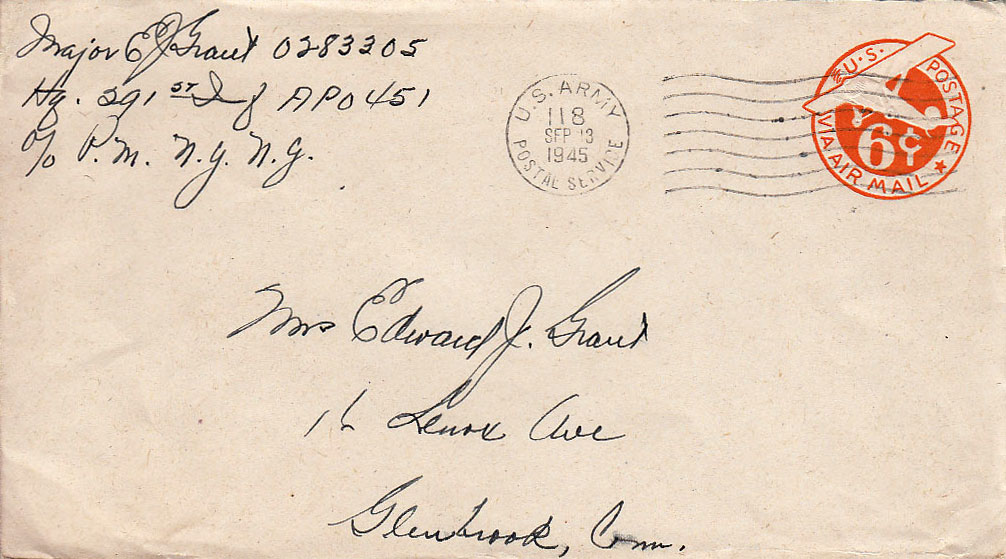 Major E J Grant 0283305
Hq. 291 st Inf APO 451
c/o P.M. N.Y. N.Y.
U.S. ARMY
118
SEP 13
1945
POSTAL SERVICE
U.S. POSTAGE
6¢
VIA AIR MAIL
Mrs Edward J. Grant
16 Lenox Ave
Glenbrook, Conn.